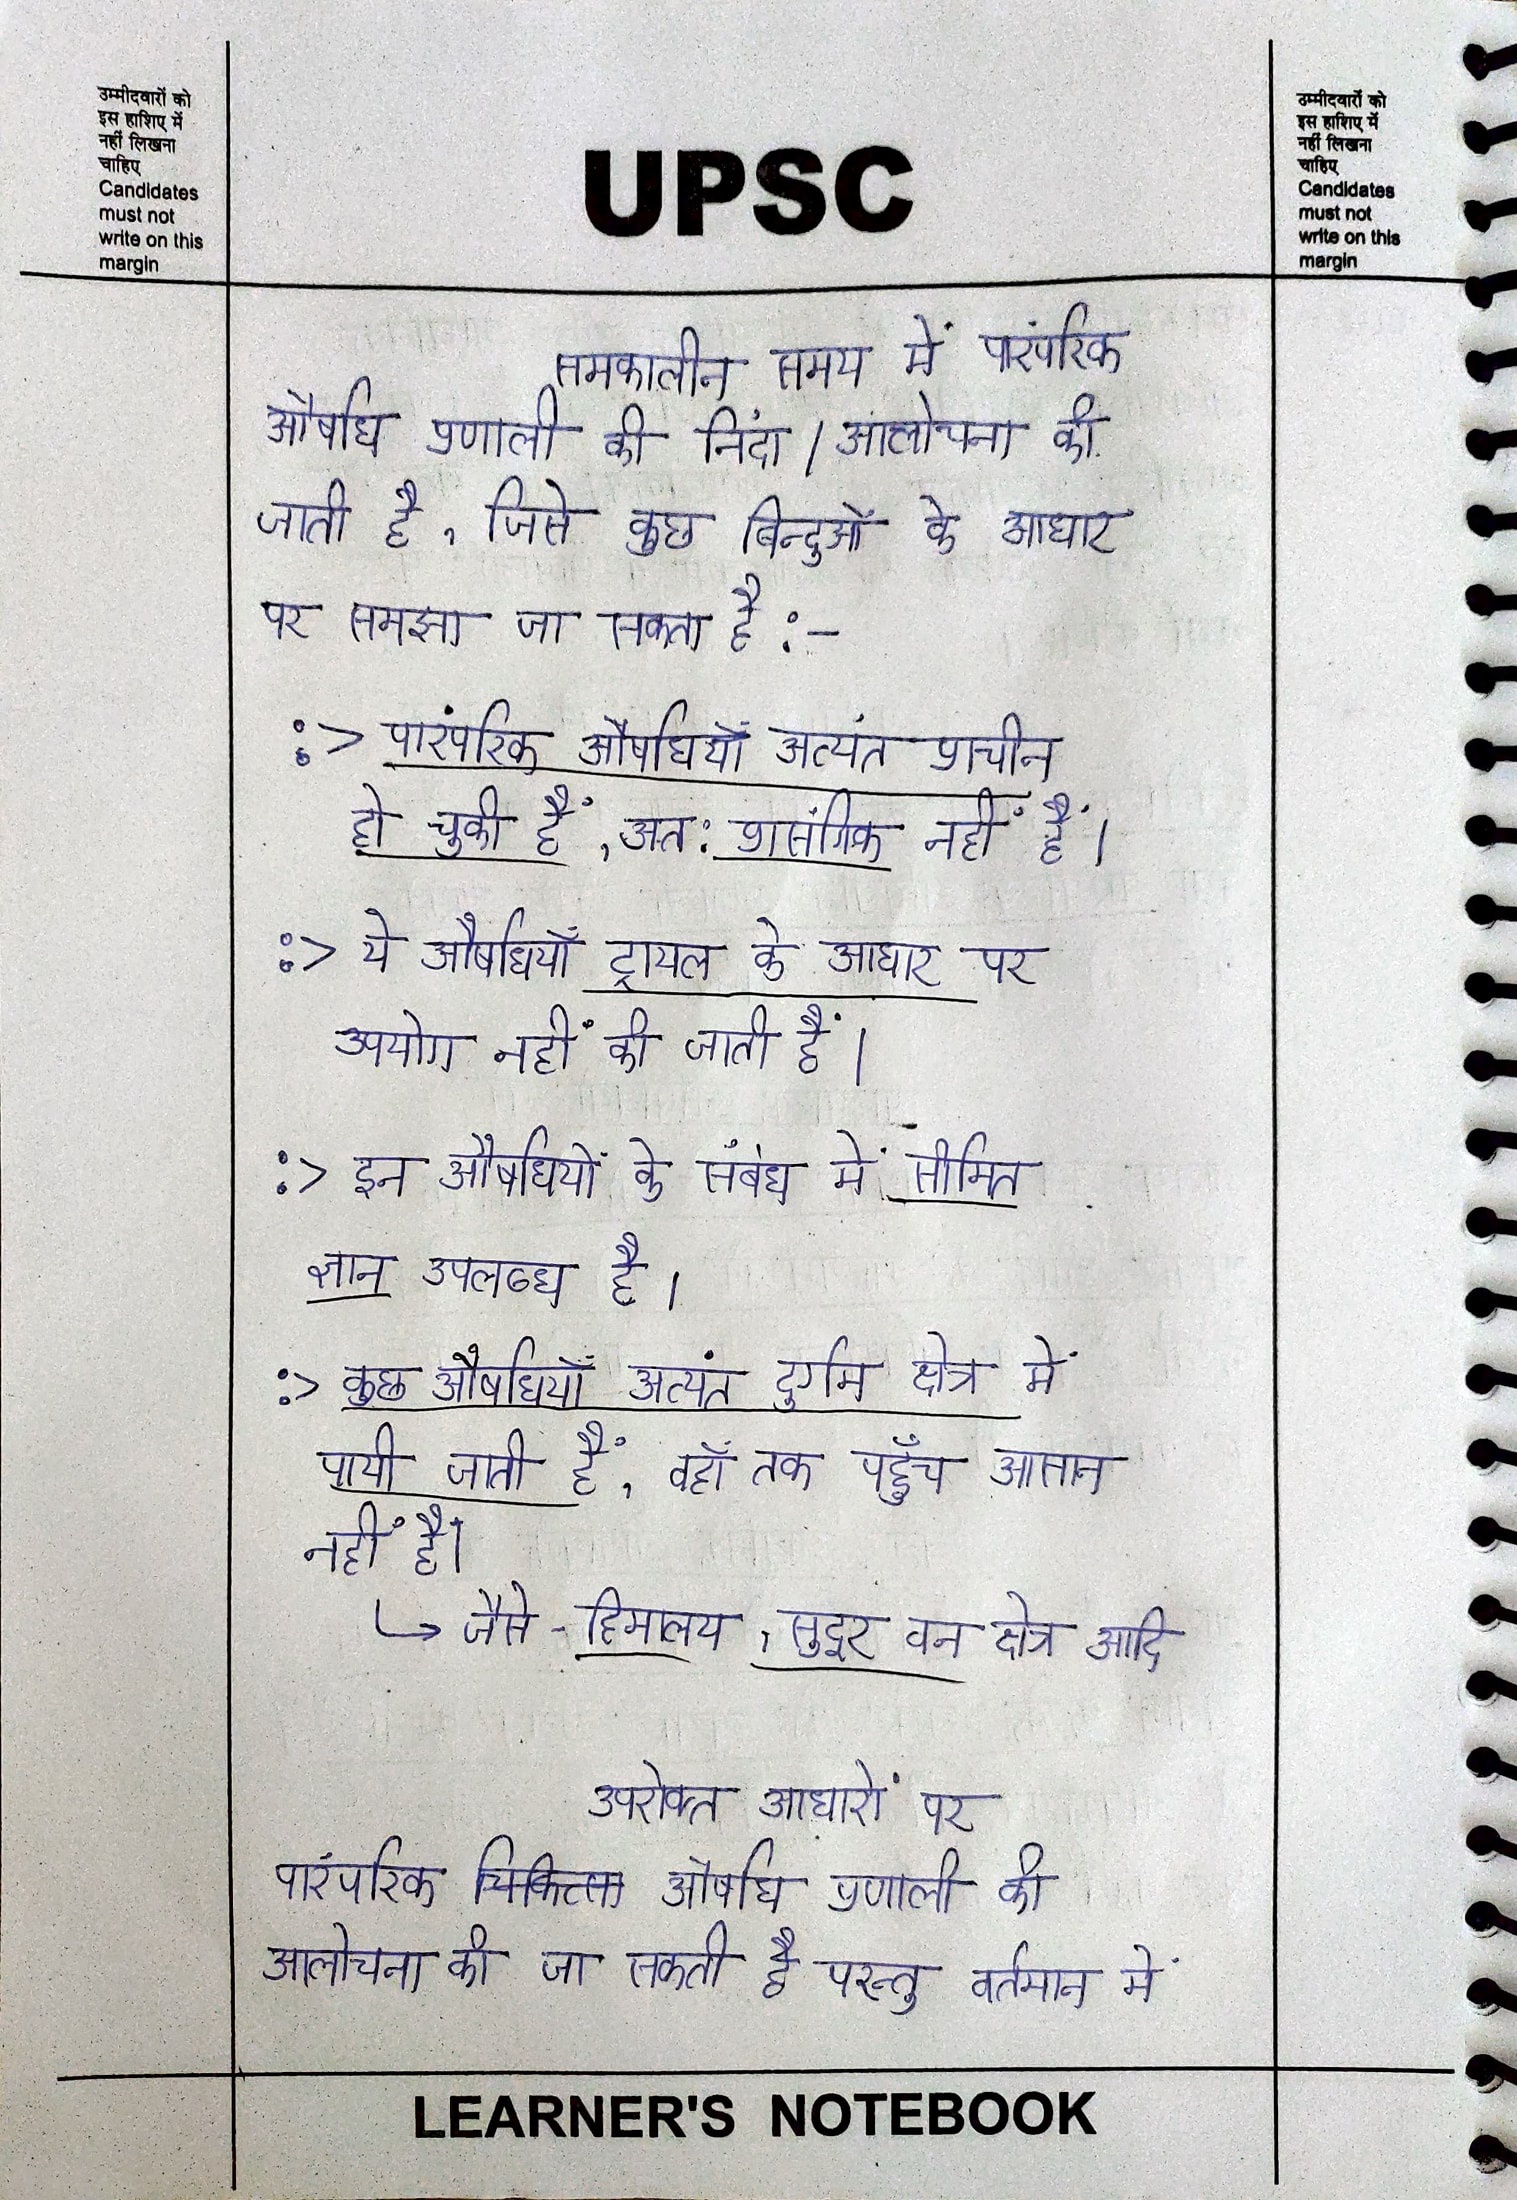 उम्मीदवारों को
इस हाशिए में
नहीं लिखना
चाहिए
Candidates
must not
write on this
margin
UPSC
उम्मीदवारों को
इस हाशिए में
नहीं लिखना
चाहिए
Candidates
must not
write on this
margin
समकालीन समय में पारंपरिक
औषधि प्रणाली की निंदा / आलोचना की
जाती है, जिसे कुछ बिन्दुओं के आधार
पर समझा जा सकता है :-
:> पारंपरिक औषधियाँ अत्यंत प्राचीन
हो चुकी हैं, अतः प्रासंगिक नहीं हैं।
:> ये औषधियाँ ट्रायल के आधार पर
उपयोग नहीं की जाती हैं।
:> इन औषधियों के संबंध में सीमित
ज्ञान उपलब्ध है।
:> कुछ औषधियाँ अत्यंत दुर्गम क्षेत्र में
पायी जाती हैं, वहाँ तक पहुँच आसान
नहीं है।
↳ जैसे - हिमालय, सुदूर वन क्षेत्र आदि
उपरोक्त आधारों पर
पारंपरिक चिकित्सा औषधि प्रणाली की
आलोचना की जा सकती है परन्तु वर्तमान में
LEARNER'S NOTEBOOK